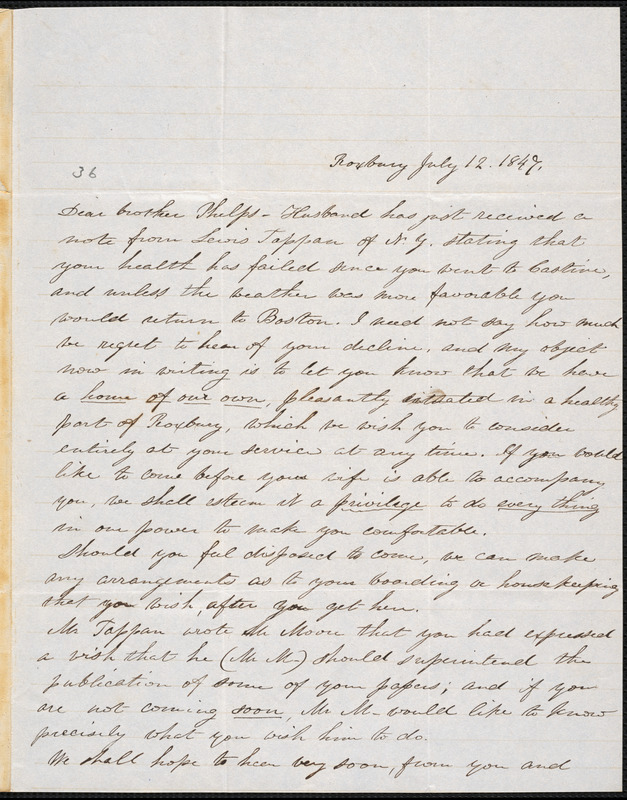 Roxbury July 12. 1847.
36
Dear brother Phelps - Husband has just received a
note from Lewis Tappan of N.Y. stating that
your health has failed since you went to Castine,
and unless the weather was more favorable you
would return to Boston. I need not say how much
we regret to hear of your decline, and my object
now in writing is to let you know that we have
a home of our own, pleasantly situated in a healthy
part of Roxbury, which we wish you to consider
entirely at your service at any time. If you would
like to come before your wife is able to accompany
you, we shall esteem it a privilege to do every thing
in our power to make you comfortable.
Should you feel disposed to come, we can make
any arrangements as to your boarding or housekeeping
that you wish after you get here.
Mr Tappan wrote Mr Moore that you had expressed
a wish that he (Mr M.) should superintend the
publication of some of your papers; and if you
are not coming soon, Mr M- would like to know
precisely what you wish him to do.
We shall hope to hear very soon, from you and